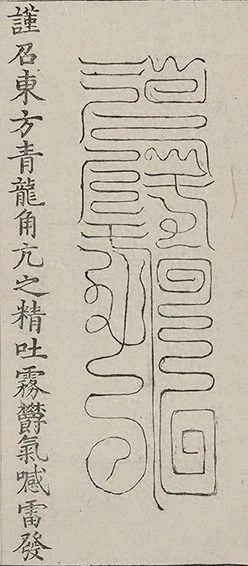 謹召東方青龍角亢之精吐霧欝氣喊雷發